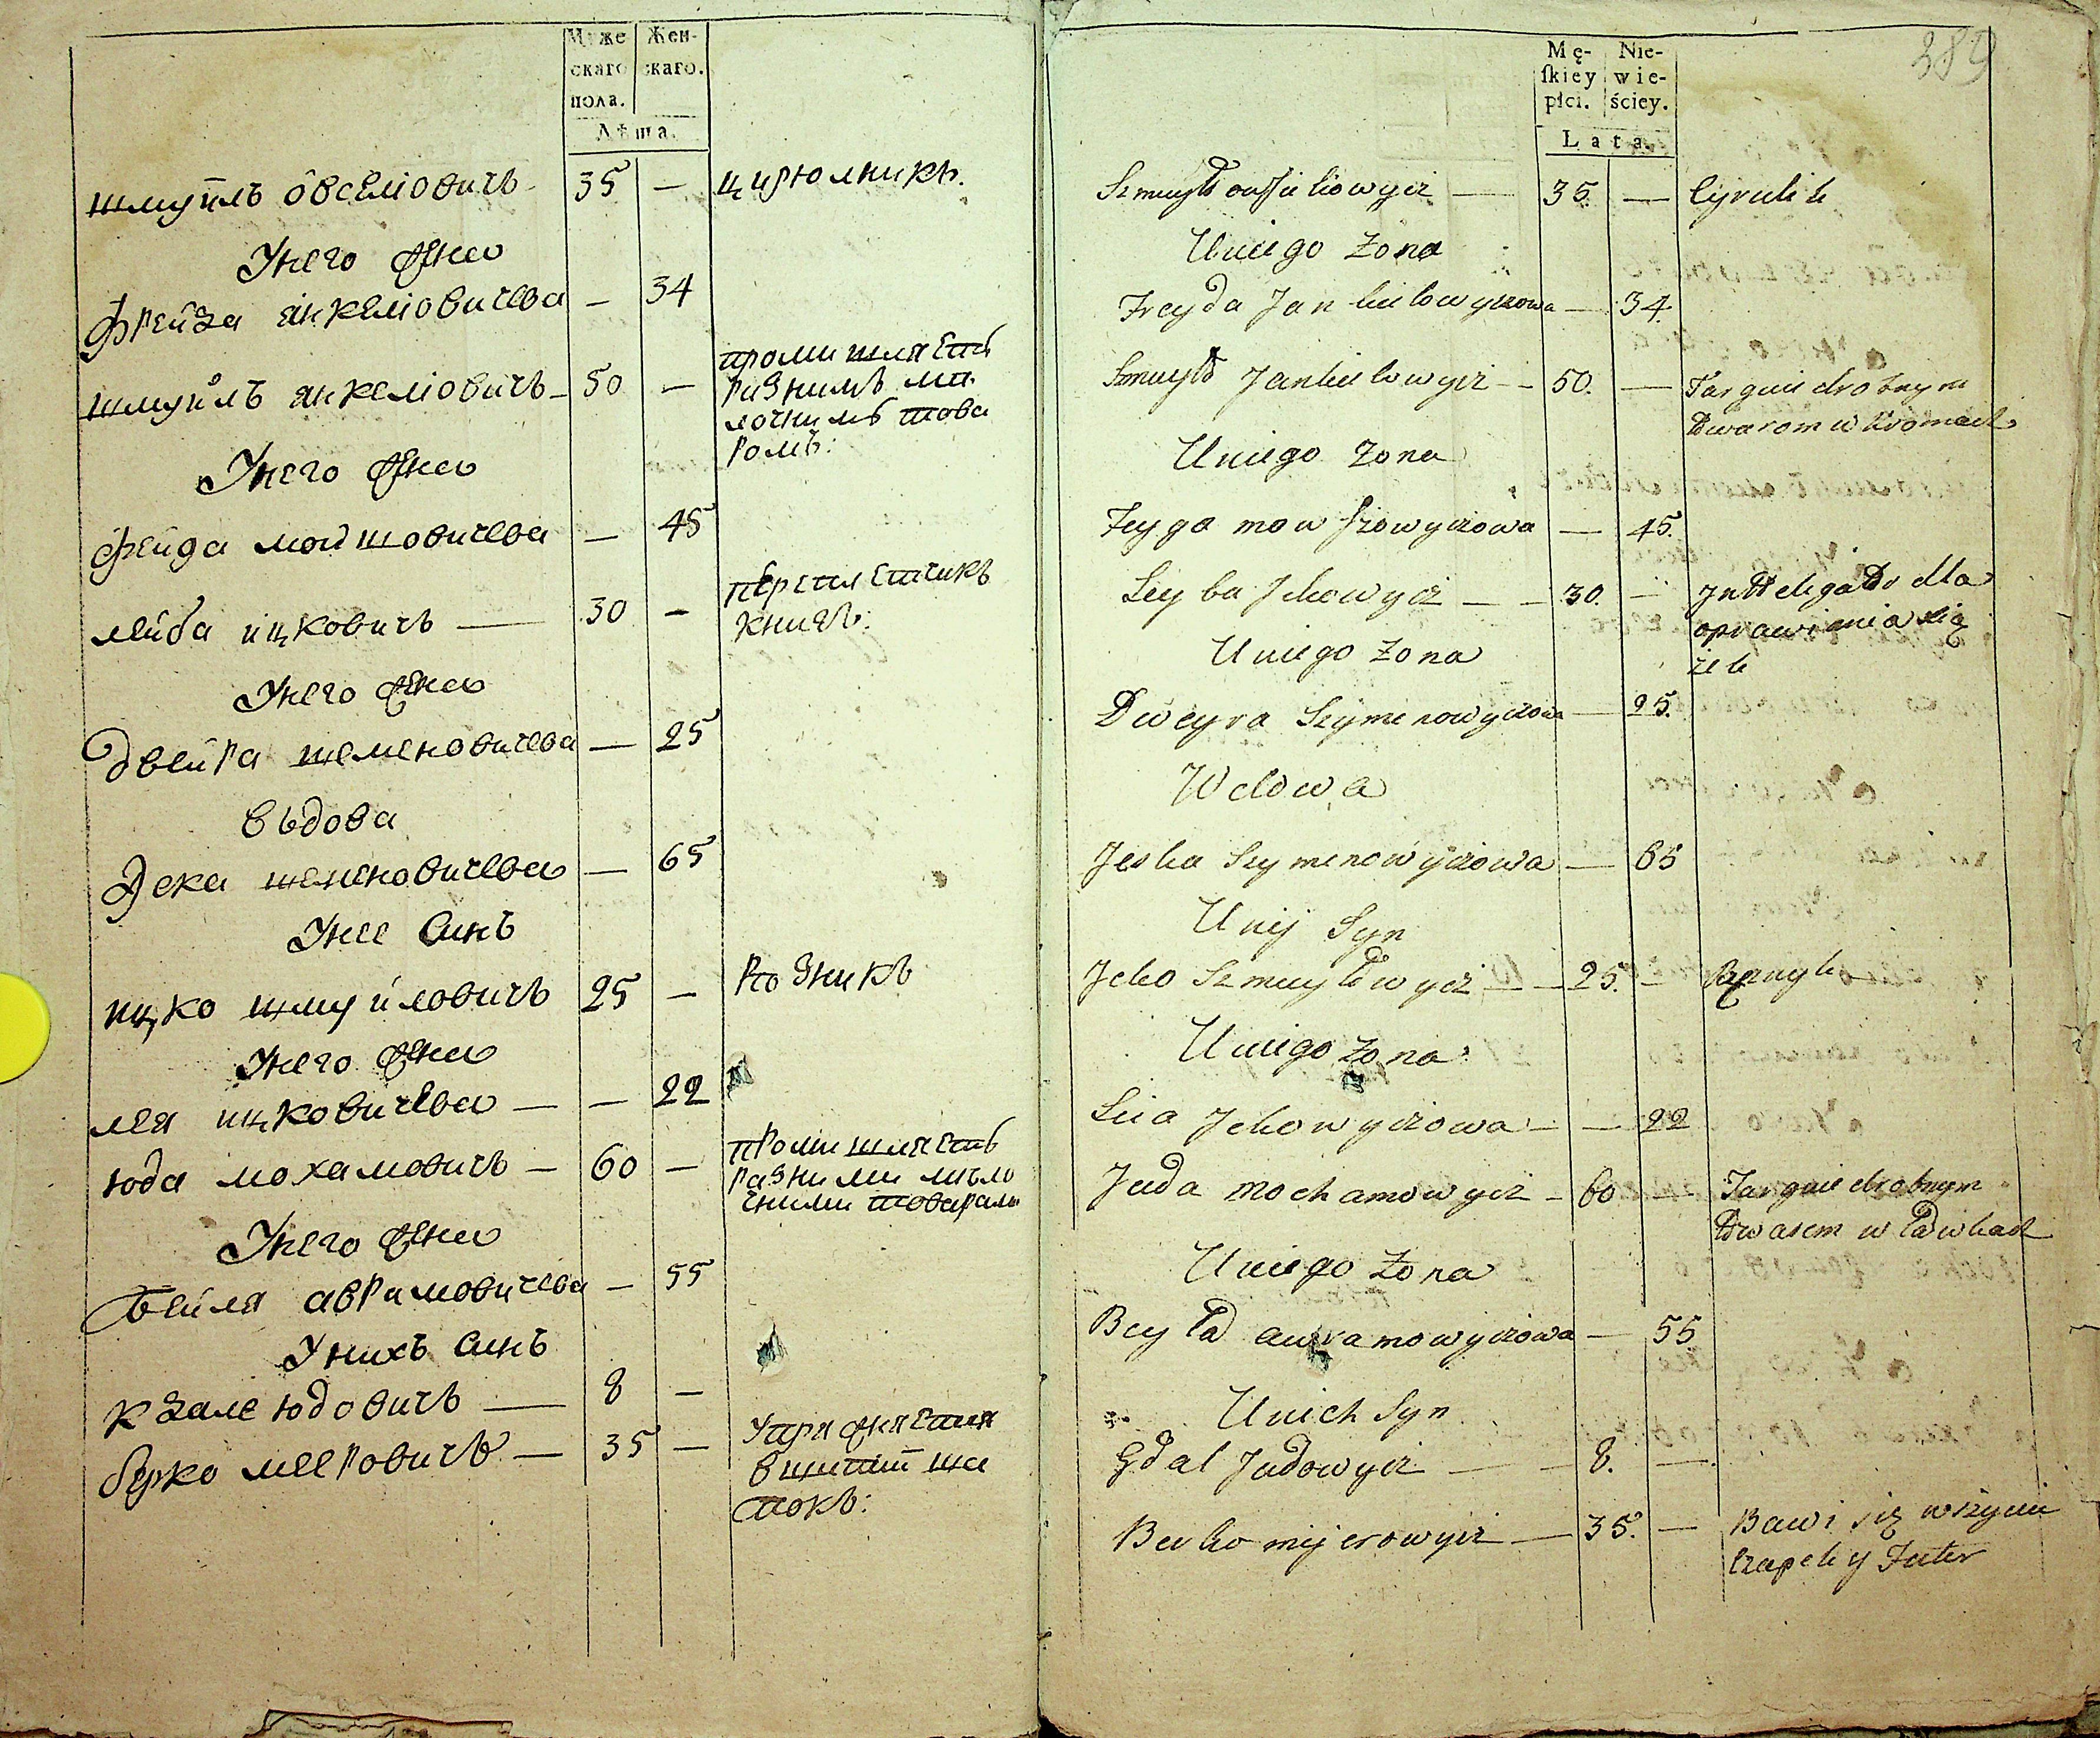 Муже Жен-
скаго скаго.
пола.
Лѣта.
шмуйлъ овселiовичъ 35 — цирюлникъ.
Унего жена
Фрейда янкелiовичева — 34
шмуйлъ янкелiовичъ — 50 —
промишляетъ
разнимъ мѣ
лочнимъ това
ромъ:
Унего жена
фейга мойшовичева — 45
лейба ицковичъ — 30 —
переплетчикъ
книгъ:
Унего жена
двейра шеменовичева — 25
въдова
Эска шеменовичева — 65
Унее синъ
ицко шмуйловичъ 25 — рѣзникъ
Унего жена
лея ицковичева — — 22
юда мохамовичъ — 60 —
промишляетъ
разними мѣло
чними товарами
Унего жена
бейля аврамовичева — 55
Унихъ синъ
кзале юдовичъ — 8 —
берко мееровичъ — 35 —
упражняется
вшитіи ша
покъ:
389
Mę- Nie-
skiey wie-
płci. ściey.
Lata.
Szmuyło owsieliowycz — 35. — Cyrulik
Uniego Żona
Freyda Jankielowyczowa — 34.
Szmuyło Jankielowycz — 50. —
Targuie drobnym
Towarom w kromach
Uniego Żona
Feyga mowszowyczowa — 45.
Leyba Jckowycz — 30. —
Jntteligator dla
oprawienia xią
żek
Uniego Żona
Dweyra Szymenowyczowa — 25.
Wdowa
Jeska Szymenowyczowa — 65
Unij Syn
Jcko Szmuyłowycz — 25. — Rzeznyk
Uniego Żona
Leia Jckowyczowa — — 22
Juda Mochamowycz — 60 —
Targuie drobnym
Towarem w ławkach
Uniego Żona
Beyła awramowyczowa — 55
Unich Syn
Gdal Judowycz — 8. —
Berko mijerowycz — 35. —
Bawi się wszyciu
Czapek y Futer